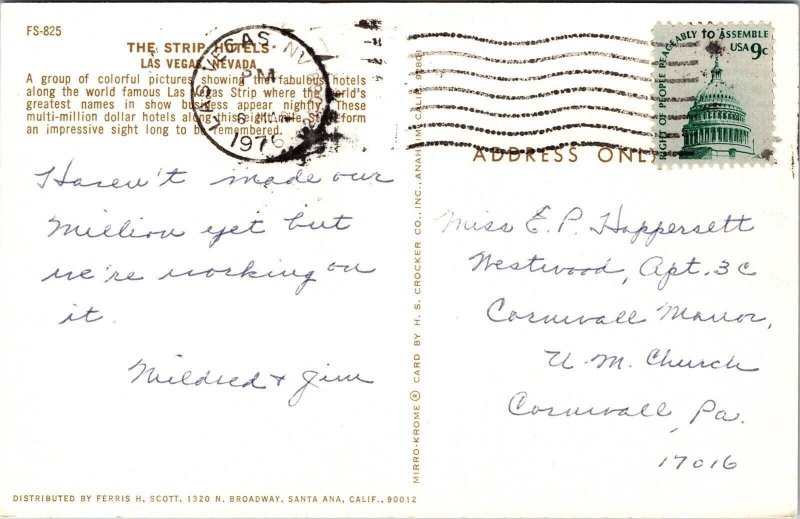 FS-825
THE STRIP HOTELS
LAS VEGAS, NEVADA
A group of colorful pictures showing the fabulous hotels
along the world famous Las Vegas Strip where the world's
greatest names in show business appear nightly. These
multi-million dollar hotels along this eight mile Strip form
an impressive sight long to be remembered.
LAS VEGAS, NV
PM
6
1976
RIGHT OF PEOPLE PEACEABLY to ASSEMBLE
USA 9c
ADDRESS ONLY
Haven't made our
Million yet but
we're working on
it.
Mildred & Jim
MIRRO-KROME ® CARD BY H. S. CROCKER CO., INC., ANAHEIM, CALIF.
Miss E. P. Happersett
Westwood, Apt. 3C
Cornwall Manor,
U. M. Church
Cornwall, Pa.
17016
DISTRIBUTED BY FERRIS H. SCOTT, 1320 N. BROADWAY, SANTA ANA, CALIF., 90012